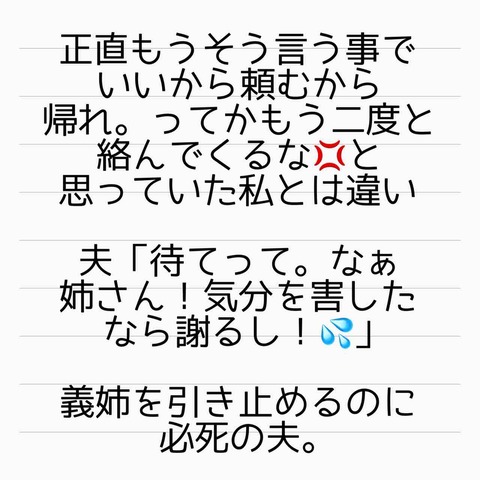 正直もうそう言う事で
いいから頼むから
帰れ。ってかもう二度と
絡んでくるな💢と
思っていた私とは違い
夫「待てって。なぁ
姉さん！気分を害した
なら謝るし！💦」
義姉を引き止めるのに
必死の夫。